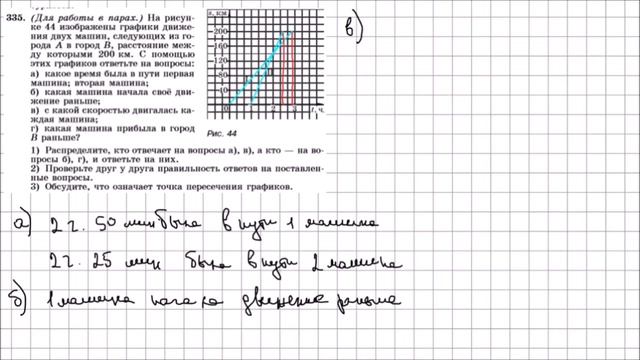 335. (Для работы в парах.) На рисун-
ке 44 изображены графики движе-
ния двух машин, следующих из го-
рода A в город B, расстояние меж-
ду которыми 200 км. С помощью
этих графиков ответьте на вопросы:
а) какое время была в пути первая
машина; вторая машина;
б) какая машина начала своё дви-
жение раньше;
в) с какой скоростью двигалась ка-
ждая машина;
г) какая машина прибыла в город
B раньше?
s, км
200
160
120
80
40
0
1
2
3
t, ч
Рис. 44
1) Распределите, кто отвечает на вопросы а), в), а кто — на во-
просы б), г), и ответьте на них.
2) Проверьте друг у друга правильность ответов на поставлен-
ные вопросы.
3) Обсудите, что означает точка пересечения графиков.
в)
а) 2 ч. 50 мин была в пути 1 машина
2 ч. 25 мин была в пути 2 машина
б) 1 машина начала движение раньше